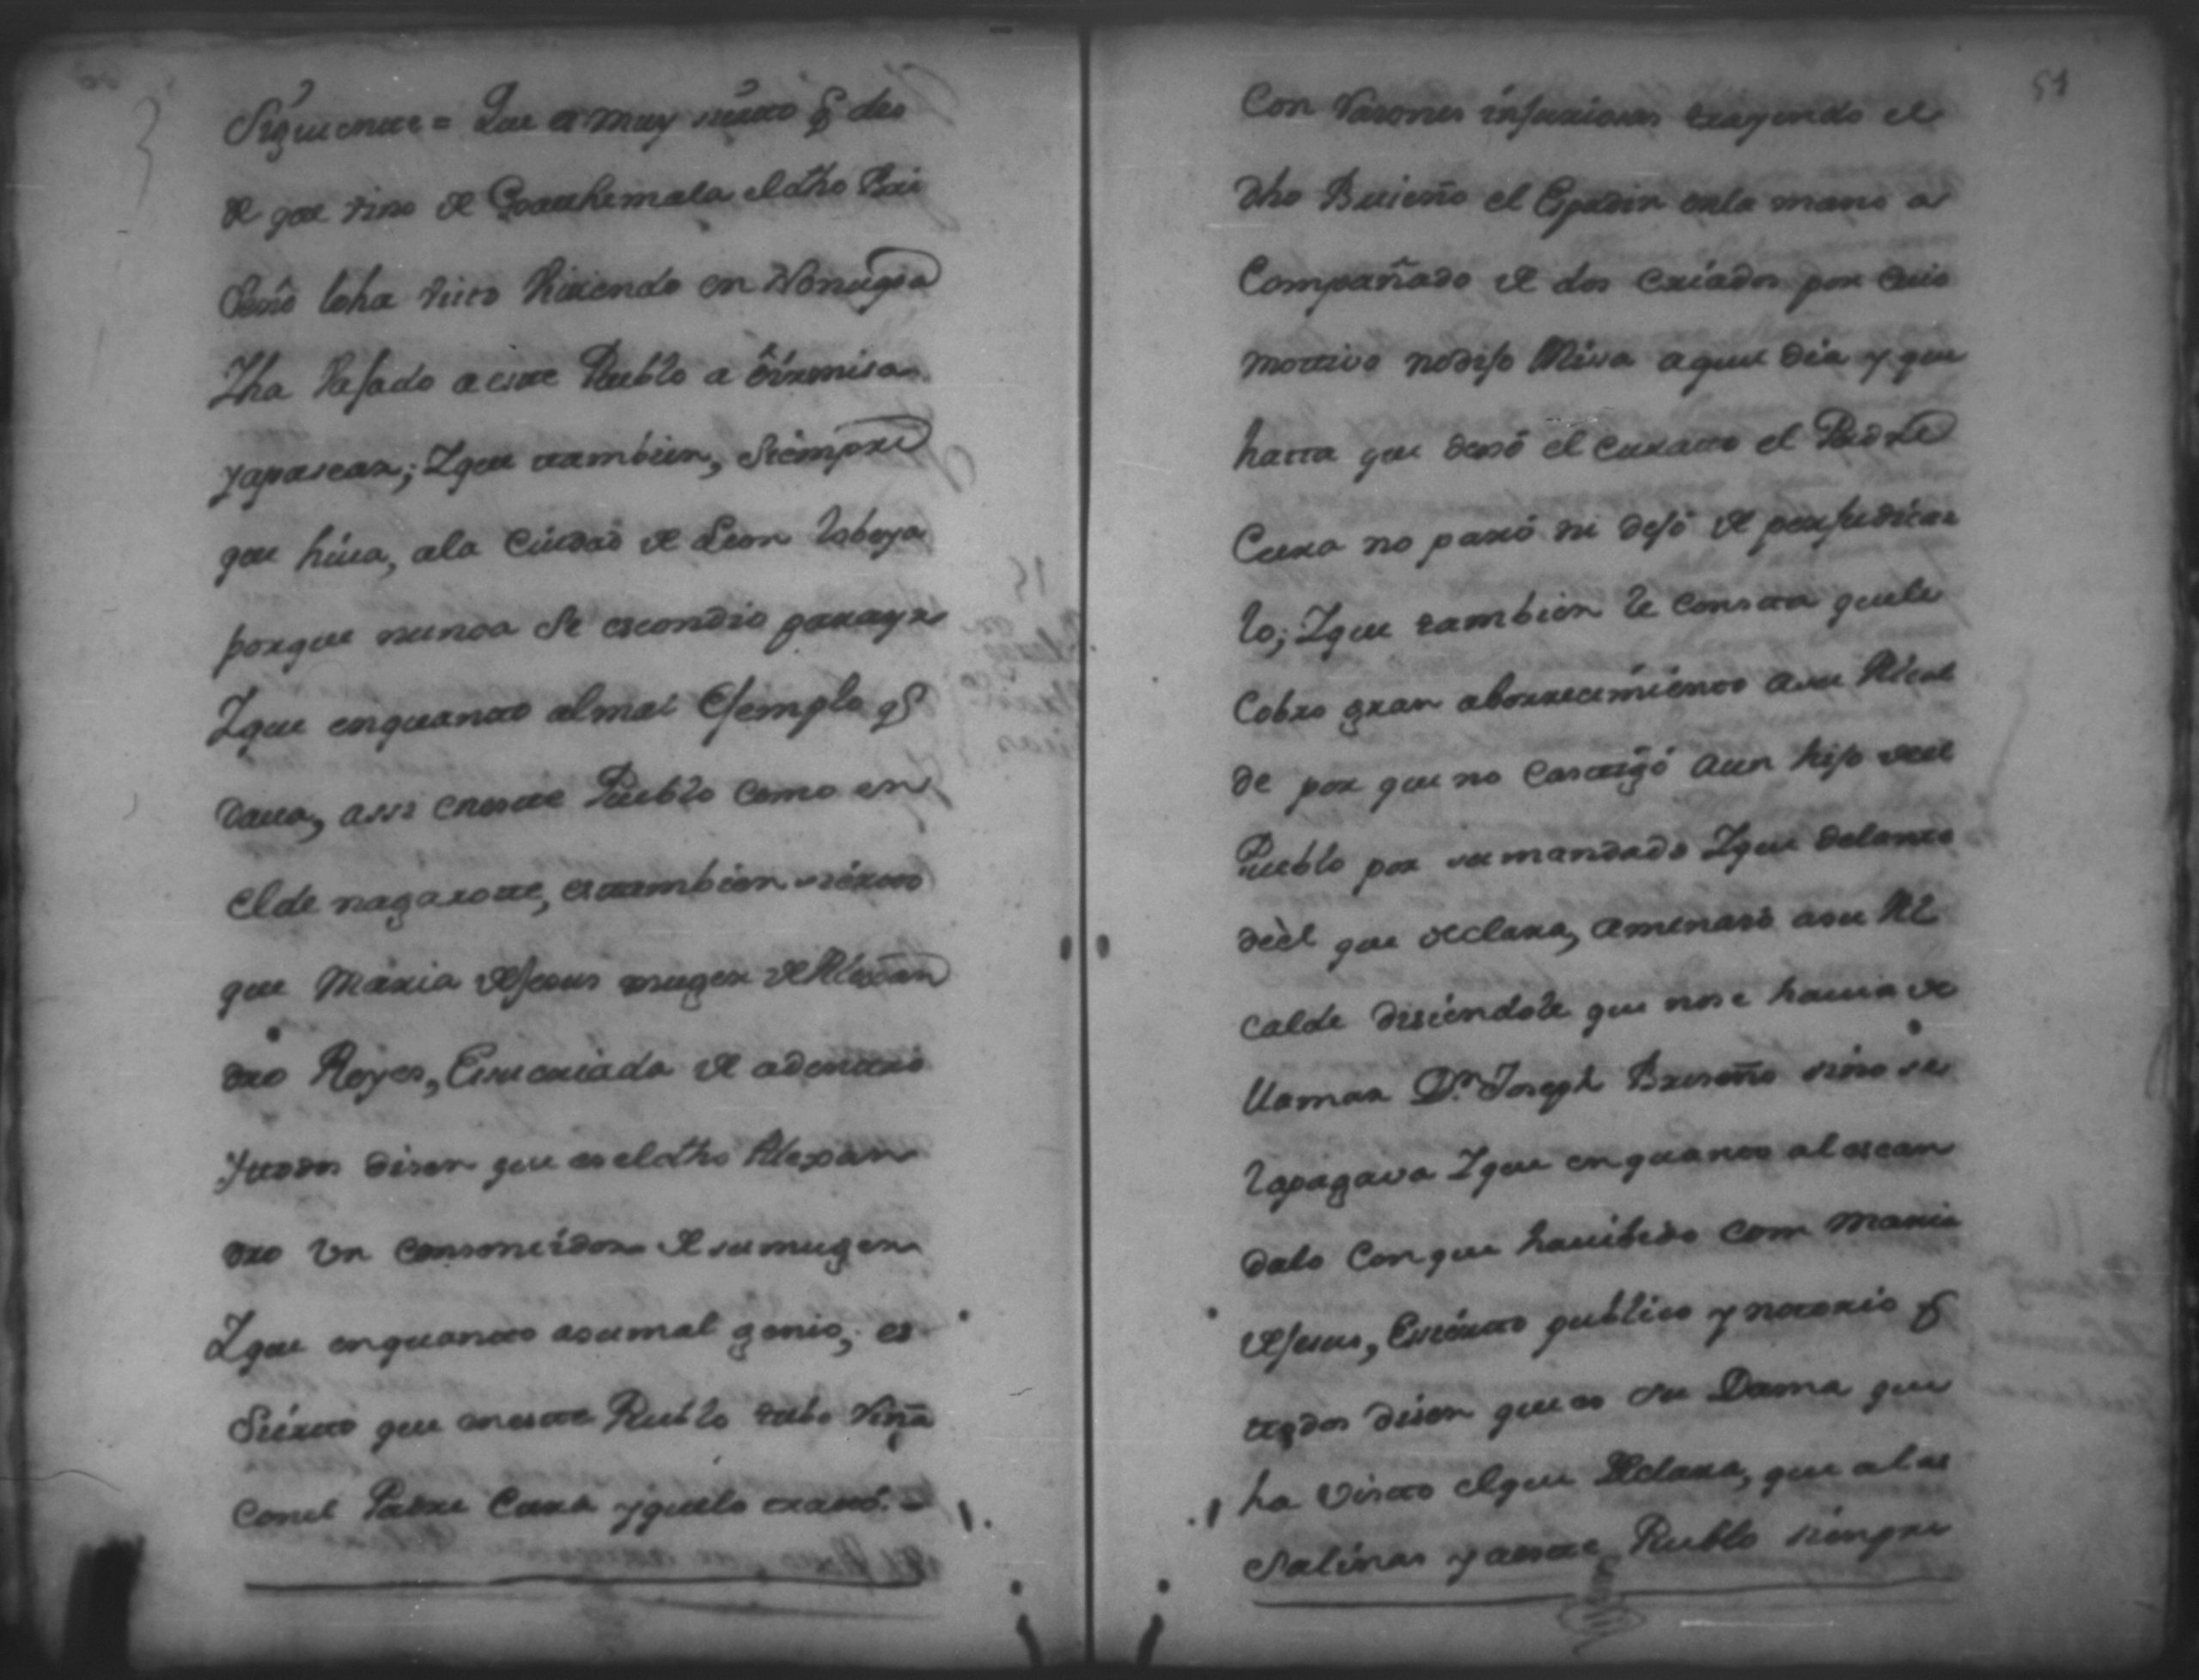 Siguiente = Que es muy sierto q̃ des
de que vino de Goathemala el dho Bri
seño loha visto viviendo en Nonugua
Y ha vajado a este Pueblo a oir misa
y apasear; Y que tambien, siempre
que hiva, ala Ciudad de Leon lo beya
porque nunca se escondio para yr
Y que enquanto al mal Ejemplo q̃
dava, assi eneste Pueblo como en
el de nagarote, es tambien sierto
que Maria de Jesus muger de Alexan
dro Reyes, Es su criada de adentro
y todos disen que es el dho Alexan
dro Vn consentidor de su muger
Y que enquanto asu mal genio, es
Sierto que eneste Pueblo tubo Riña
Conel Padre Cura y que lo trató. =
51
Con Rasones injuriosas trayendo el
dho Briseño el Espadin enla mano a
Compañado de dos criados por cuio
mottivo no dijo Misa aquel dia y que
hasta que dexó el curato el Padre
Cura no paró ni dejó de perjudicar
lo; Y que tambien le consta que le
Cobro gran aborrecimiento asu Alcal
de por que no Castigó aun hijo del
Pueblo por su mandado Y que delante
deel que declara, amenasó asu Al
calde disiendole que nose havia de
llamar Dn. Joseph Briseño sino se
la pagava Y que enquanto al escan
dalo Con que ha vibido Com Maria
de Jesus, Es sierto publico y notorio q̃
todos disen que es su Dama que
ha visto el que Declara, que alas
Salinas y aeste Pueblo siempre